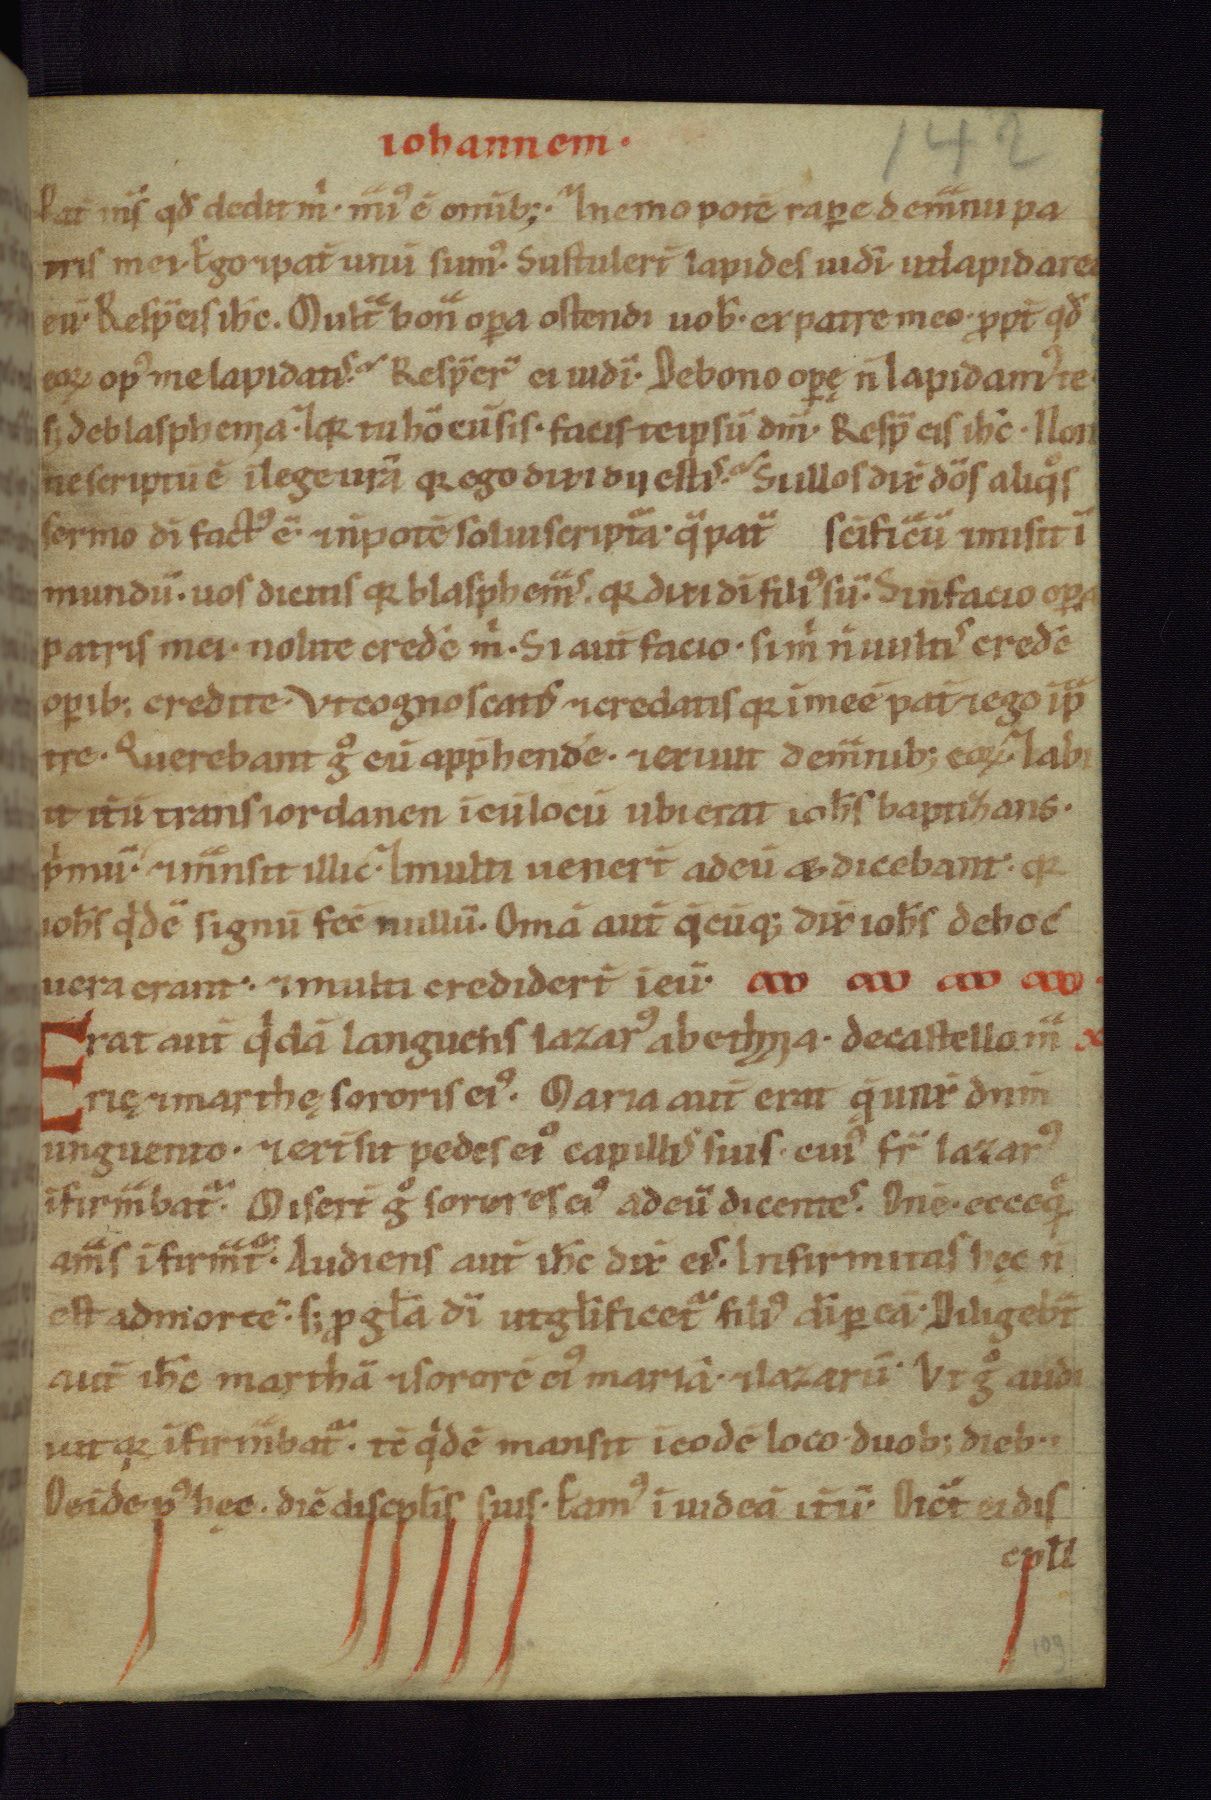 iohannem·
142
Pat mȝ qđ dedit m̄· mai᷒ ē omīb;· ⁊ nemo potē rape de manu pa
tris mei· Ego ⁊ pat̄ unū sum᷒· Sustulert̄ lapides iudi ut lapidare
eū· Resp̄ eis ihc̄. Multa bona opa ostendi uob̄· ex patre meo· ppt̄ qđ
eoꝝ op᷒ me lapidatis· Resper̄ ei iudi· De bono opę n̄ lapidam᷒ te
s; de blasphemia· ⁊ qꝛ tu hō cū sis· facis te ipsū dm̄· Resp̄ eis ihc̄· Non
ne scriptū ē ī lege urā qꝛ ego dixi dii estis· Si illos dix̄ dōs ad q̊s
sermo dī fact᷒ ē· ⁊ n̄ potē solui scriptā· q̄ pat̄ scīficāū ⁊ misit ī
mundū· uos dicitis qꝛ blasphemas· qꝛ dixi dī fili᷒ sū· Si n̄ facio opa
patris mei· nolite credē m̄· Si aut̄ facio· si m̄ n̄ uultis credē
opib; credite· Vt cognoscatis ⁊ credatis qꝛ ī me ē pat̄ ⁊ ego ī pa
tre· Querebant g̊ eū apphendē· ⁊ exiuit de manib; eoꝝ· ⁊ abi
it itū trans iordanen ī eū locū ubi erat ioh̄s baptizans·
pmū· ⁊ mansit illic· ⁊ multi uenert̄ ad eū & dicebant· qꝛ
ioh̄s qdē signū fec̄ nullū· Oma aut̄ q̄cūq; dix̄ ioh̄s de hoc
uera erant· ⁊ multi crediderт̄ ī eū·
Erat aut̄ qdā languens lazar᷒ a bethania· de castello ma
rię ⁊ marthę sororis ei᷒· Maria aut̄ erat q̄ unx̄ dnm̄
unguento· ⁊ ext̄sit pedes ei᷒ capillis suis· cui᷒ fr̄ lazar᷒
īfirmabat᷑· Misert̄ g̊ sorores ei᷒ ad eū dicentes· Dn̄e· ecce qm̄
amas īfirmat᷑· Audiens aut̄ ihc̄ dix̄ eis· Infirmitas hęc n̄
est ad mortē· s; p gl̄a dī ut gl̄ificet᷑ fili᷒ dī p eā· Diligebat
aut̄ ihc̄ marthā ⁊ sororē ei᷒ mariā· ⁊ lazarū· Vt g̊ audi
uit qꝛ īfirmabat᷑· tē qdē mansit ī eodē loco duob; dieb·
Deīde p᷒ hęc· dic̄ discplīs suis· Eam᷒ ī iudeā itū· Dicт̄ ei dis
cpli
109